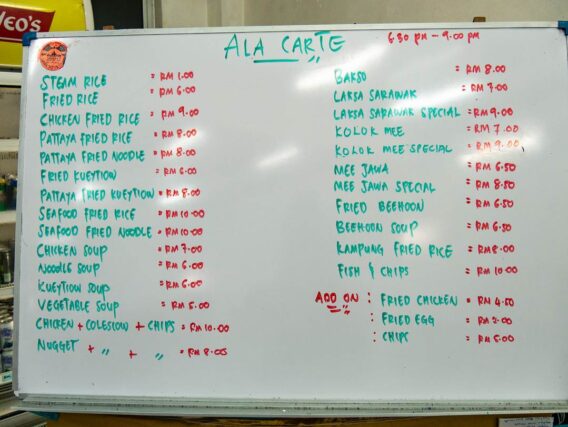 YEO'S
ALA CARTE
6.30 PM - 9.00 PM
STEAM RICE = RM 1.00
FRIED RICE = RM 6.00
CHICKEN FRIED RICE = RM 9.00
PATTAYA FRIED RICE = RM 8.00
PATTAYA FRIED NOODLE = RM 8.00
FRIED KUEYTIOW = RM 6.00
PATTAYA FRIED KUEYTIOW = RM 8.00
SEAFOOD FRIED RICE = RM 10.00
SEAFOOD FRIED NOODLE = RM 10.00
CHICKEN SOUP = RM 7.00
NOODLE SOUP = RM 6.00
KUEYTIOW SOUP = RM 6.00
VEGETABLE SOUP = RM 5.00
CHICKEN + COLESLOW + CHIPS = RM 10.00
NUGGET + " + " = RM 8.00
BAKSO = RM 8.00
LAKSA SARAWAK = RM 7.00
LAKSA SARAWAK SPECIAL = RM 9.00
KOLOK MEE = RM 7.00
KOLOK MEE SPECIAL = RM 9.00
MEE JAWA = RM 6.50
MEE JAWA SPECIAL = RM 8.50
FRIED BEEHOON = RM 6.50
BEEHOON SOUP = RM 6.50
KAMPUNG FRIED RICE = RM 8.00
FISH & CHIPS = RM 10.00
ADD ON : FRIED CHICKEN = RM 4.50
: FRIED EGG = RM 2.00
: CHIPS = RM 5.00